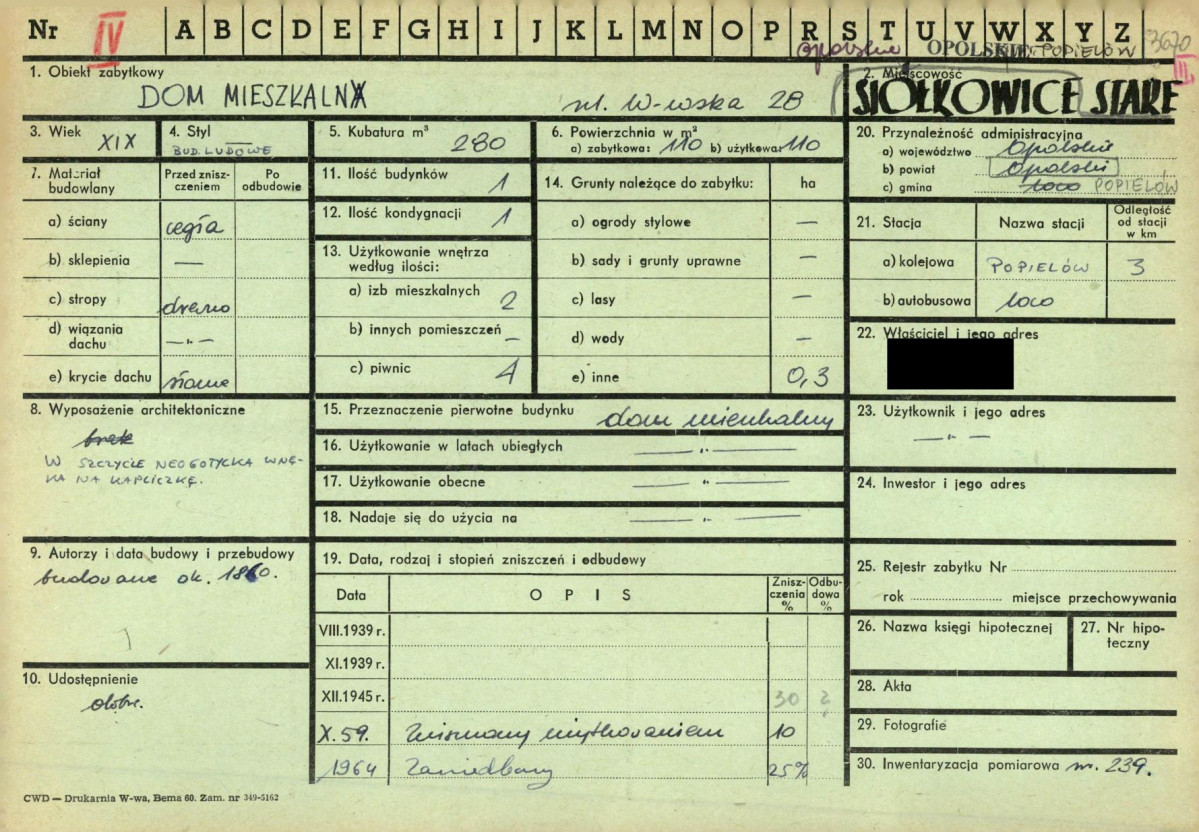 Nr IV A B C D E F G H I J K L M N O P R S T U V W X Y Z 3670
opolskie OPOLSKIE POPIELÓW III
1. Obiekt zabytkowy
DOM MIESZKALNY ul. W-wska 28
2. Miejscowość
SIOŁKOWICE STARE
3. Wiek XIX
4. Styl
BUD. LUDOWE
5. Kubatura m³ 280
6. Powierzchnia w m²
a) zabytkowa: 110 b) użytkowa: 110
20. Przynależność administracyjna
a) województwo opolskie
b) powiat opolski
c) gmina loco POPIELÓW
7. Materiał budowlany
Przed zniszczeniem
Po odbudowie
a) ściany cegła
b) sklepienia —
c) stropy drewno
d) wiązania dachu —„—
e) krycie dachu słoma
11. Ilość budynków 1
12. Ilość kondygnacji 1
13. Użytkowanie wnętrza według ilości:
a) izb mieszkalnych 2
b) innych pomieszczeń —
c) piwnic 1
14. Grunty należące do zabytku: ha
a) ogrody stylowe —
b) sady i grunty uprawne —
c) lasy —
d) wody —
e) inne 0,3
21. Stacja
Nazwa stacji
Odległość od stacji w km
a) kolejowa POPIELÓW 3
b) autobusowa loco
22. Właściciel i jego adres
8. Wyposażenie architektoniczne
brak
W SZCZYCIE NEOGOTYCKA WNĘ-
KA NA KAPLICZKĘ.
15. Przeznaczenie pierwotne budynku dom mieszkalny
16. Użytkowanie w latach ubiegłych —„—
17. Użytkowanie obecne —„—
18. Nadaje się do użycia na —„—
23. Użytkownik i jego adres
—„—
24. Inwestor i jego adres
9. Autorzy i data budowy i przebudowy
budowane ok. 1860.
10. Udostępnienie
dobre.
19. Data, rodzaj i stopień zniszczeń i odbudowy
Data OPIS Zniszczenia % Odbudowa %
VIII.1939 r.
XI.1939 r.
XII.1945 r. 30 ?
X.59. Zniszczony użytkowaniem 10
1964 Zaniedbany 25%
25. Rejestr zabytku Nr
rok miejsce przechowywania
26. Nazwa księgi hipotecznej
27. Nr hipoteczny
28. Akta
29. Fotografie
30. Inwentaryzacja pomiarowa nr. 239.
CWD — Drukarnia W-wa, Bema 60. Zam. nr 349-5162